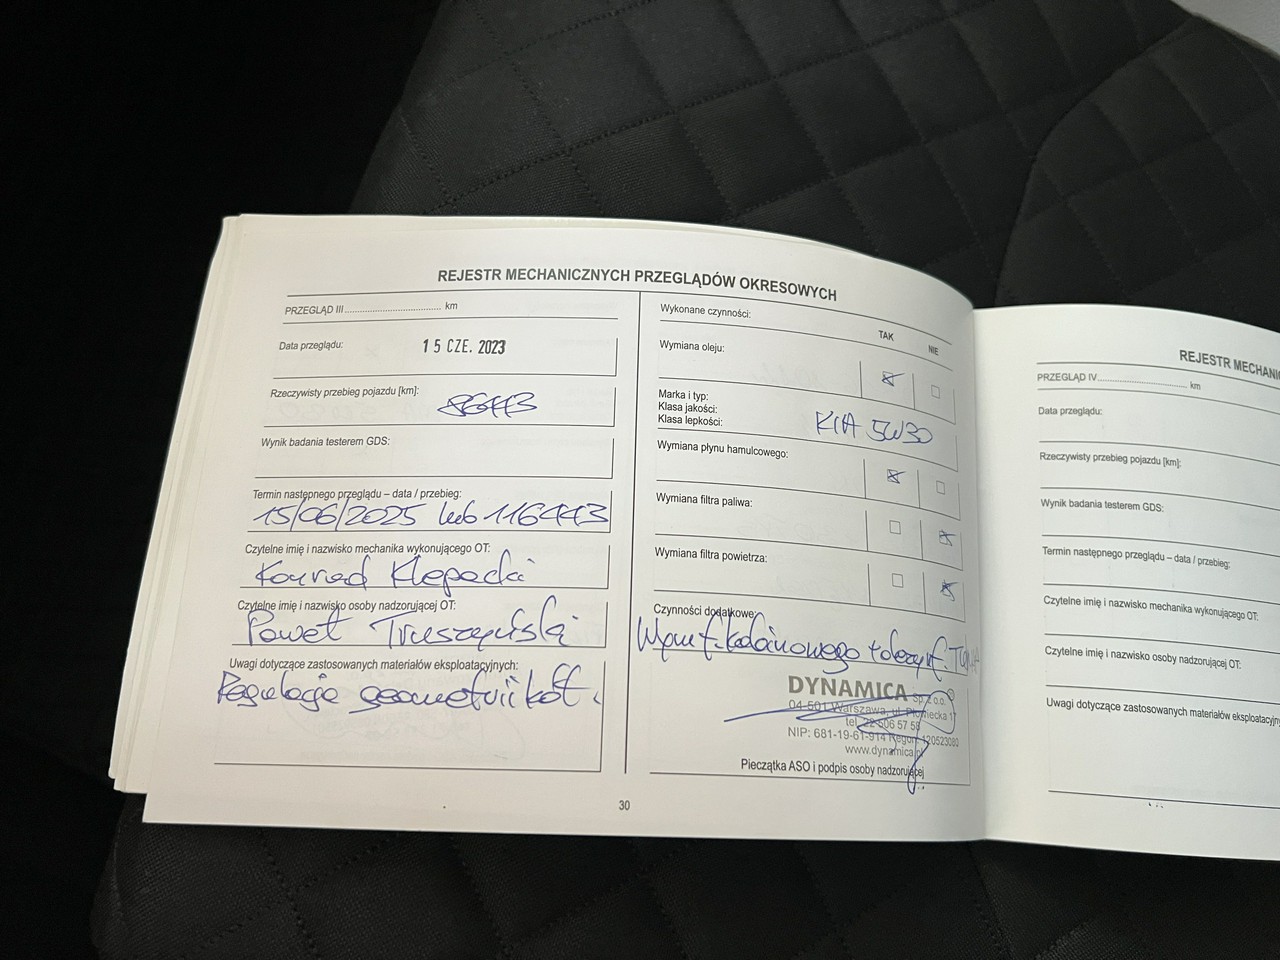 REJESTR MECHANICZNYCH PRZEGLĄDÓW OKRESOWYCH
PRZEGLĄD III.................................... km
Data przeglądu: 15 CZE. 2023
Rzeczywisty przebieg pojazdu [km]: 86443
Wynik badania testerem GDS:
Termin następnego przeglądu – data / przebieg:
15/06/2025 lub 116443
Czytelne imię i nazwisko mechanika wykonującego OT:
Konrad Klepacki
Czytelne imię i nazwisko osoby nadzorującej OT:
Paweł
Uwagi dotyczące zastosowanych materiałów eksploatacyjnych:
Regulacja geometrii kół.
Wykonane czynności:
TAK NIE
Wymiana oleju:
Marka i typ:
Klasa jakości:
Klasa lepkości:
KIA 5W30
Wymiana płynu hamulcowego:
Wymiana filtra paliwa:
Wymiana filtra powietrza:
Czynności dodatkowe:
Wym f. kabinowego +
DYNAMICA Sp. z o.o.
04-501 Warszawa, ul. Płowiecka 1
tel. 22 506 57 58
NIP: 681-19-61-914 Regon 120523080
www.dynamica.pl
Pieczątka ASO i podpis osoby nadzorującej
30
REJESTR
PRZEGLĄD IV.................................... km
Data przeglądu:
Rzeczywisty przebieg pojazdu [km]:
Wynik badania testerem GDS:
Termin następnego przeglądu – data / przebieg:
Czytelne imię i nazwisko mechanika wykonującego OT:
Czytelne imię i nazwisko osoby nadzorującej OT:
Uwagi dotyczące zastosowanych materiałów